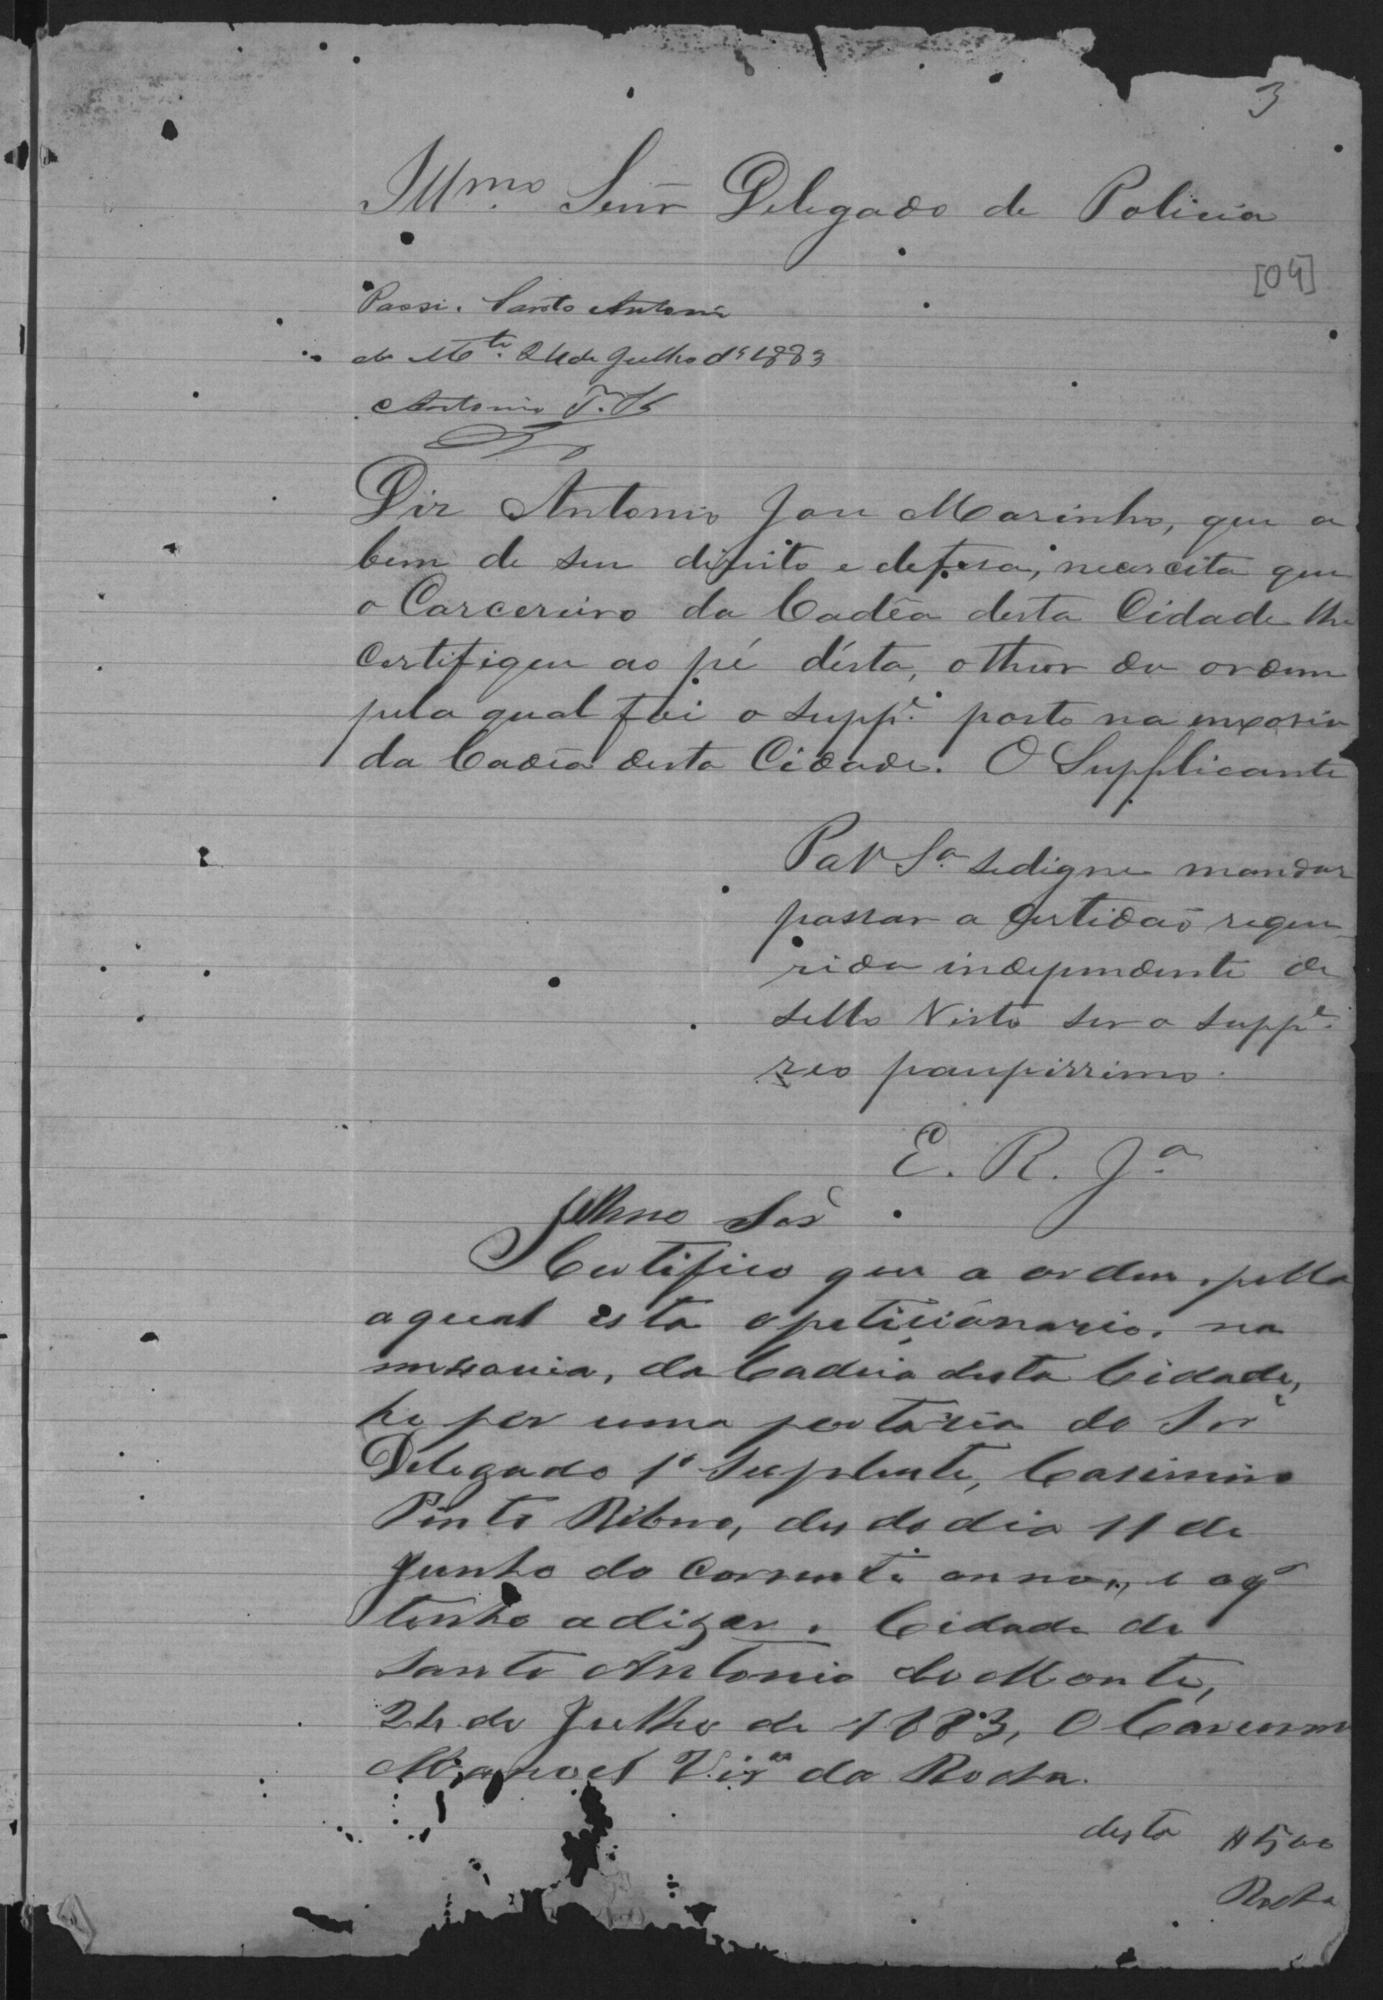 3
Illmo. Senr Delegado de Policia
[04]
Passe. Santo Antonio
do Mte. 24 de Julho de 1883
Antonio
Diz Antonio Jose Marinho, que a
bem de seu direito e defesa, necescita que
o Carcereiro da Cadêa desta Cidade lhe
certifique ao pé désta, o theor da ordem
pela qual foi o suppe. posto na enxovia
da Cadêa desta Cidade. O Supplicante
P a V Sa. se digne mandar
passar a Certidaõ reque
rida independente de
sello Visto ser o suppe.
reo paupirrimo.
E. R. Ja.
Illmo Sor
Certifico que a ordem, pella
a qual esta o peticionario, na
inxovia, da Cadeia desta Cidade,
he por uma portaria do Sor
Delegado 1º Suplente, Casimiro
Pinto Ribro, des do dia 11 de
Junho do corrente anno, e o q
tenho a dizer. Cidade de
Santo Antonio do Monte,
24 de Julho de 1883, O Carcereiro
Manoel Vira da Rocha.
desta #500
Rocha